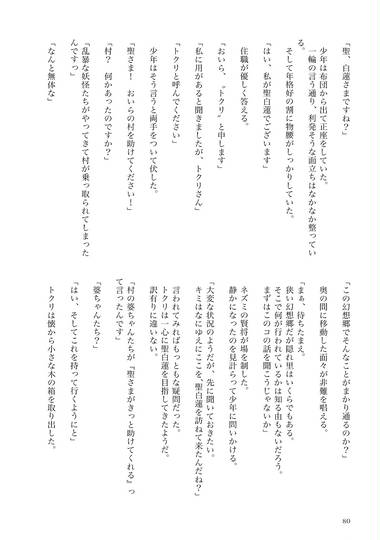 「聖、白蓮さまですね?」
少年は布団から出て正座をしていた。
一輪の言う通り、利発そうな面立ちはなかなか整ってい
る。
そして年格好の割に物腰がしっかりしていた。
「はい、私が聖白蓮でございます」
住職が優しく答える。
「おいら、〝トクリ〟と申します」
「私に用があると聞きましたが、トクリさん」
「トクリと呼んでください」
少年はそう言うと両手をついて伏した。
「聖さま! おいらの村を助けてください!」
「村? 何かあったのですか?」
「乱暴な妖怪たちがやってきて村が乗っ取られてしまった
んですっ」
「なんと無体な」
「この幻想郷でそんなことがまかり通るのか?」
奥の間に移動した面々が非難を唱える。
「まぁ、待ちたまえ。
狭い幻想郷だが隠れ里はいくらでもある、
そこで何が行われているかは知る由もないだろう。
まずはこのコの話を聞こうじゃないか」
ネズミの賢将が場を制した。
静かになったのを見計らって少年に問いかける。
「大変な状況のようだが、先に聞いておきたい。
キミはなにゆえにここを、聖白蓮を訪ねて来たんだね?」
言われてみればもっともな疑問だった。
トクリは一心に聖白蓮を目指してきたようだ。
訳有りに違いない。
「村の婆ちゃんたちが『聖さまがきっと助けてくれる』っ
て言ったんです」
「婆ちゃんたち?」
「はい、そしてこれを持って行くようにと」
トクリは懐から小さな木の箱を取り出した。
80